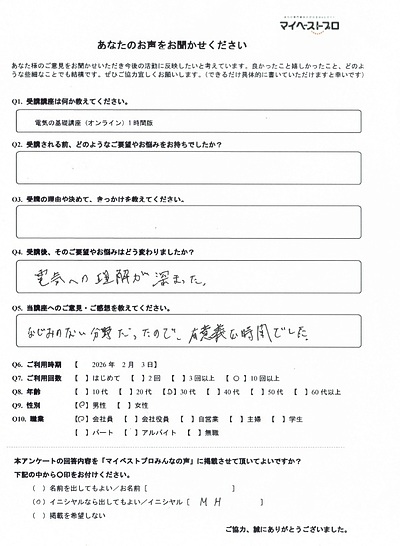 マイベストプロ
あなたのお声をお聞かせください
あなた様のご意見をお聞かせいただき今後の活動に反映したいと考えています。良かったこと嬉しかったこと、どのよ
うな些細なことでも結構です。ぜひご協力宜しくお願いします。(できるだけ具体的に書いていただけますと幸いです)
Q1. 受講講座は何か教えてください。
電気の基礎講座(オンライン)1時間版
Q2. 受講される前、どのようなご要望やお悩みをお持ちでしたか?
Q3. 受講の理由や決めて、きっかけを教えてください。
Q4. 受講後、そのご要望やお悩みはどう変わりましたか?
電気への理解が深まった。
Q5. 当講座へのご意見・ご感想を教えてください。
なじみのない分野だったので、有意義な時間でした。
Q6. ご利用時期 【 2026 年 2 月 3 日】
Q7. ご利用回数 【 】はじめて 【 】2 回 【 】3 回以上 【○】10 回以上
Q8. 年齢 【 】10 代 【 】20 代 【○】30 代 【 】40 代 【 】50 代 【 】60 代以上
Q9. 性別 【○】男性 【 】女性
Q10. 職業 【○】会社員 【 】会社役員 【 】自営業 【 】主婦 【 】学生
【 】パート 【 】アルバイト 【 】無職
本アンケートの回答内容を「マイベストプロみんなの声」に掲載させて頂いてよいですか?
下記の中から〇印をお付けください。
( ) 名前を出してもよい/お名前 [ ]
(○) イニシャルなら出してもよい/イニシャル [ M H ]
( ) 掲載を希望しない
ご協力、誠にありがとうございました。